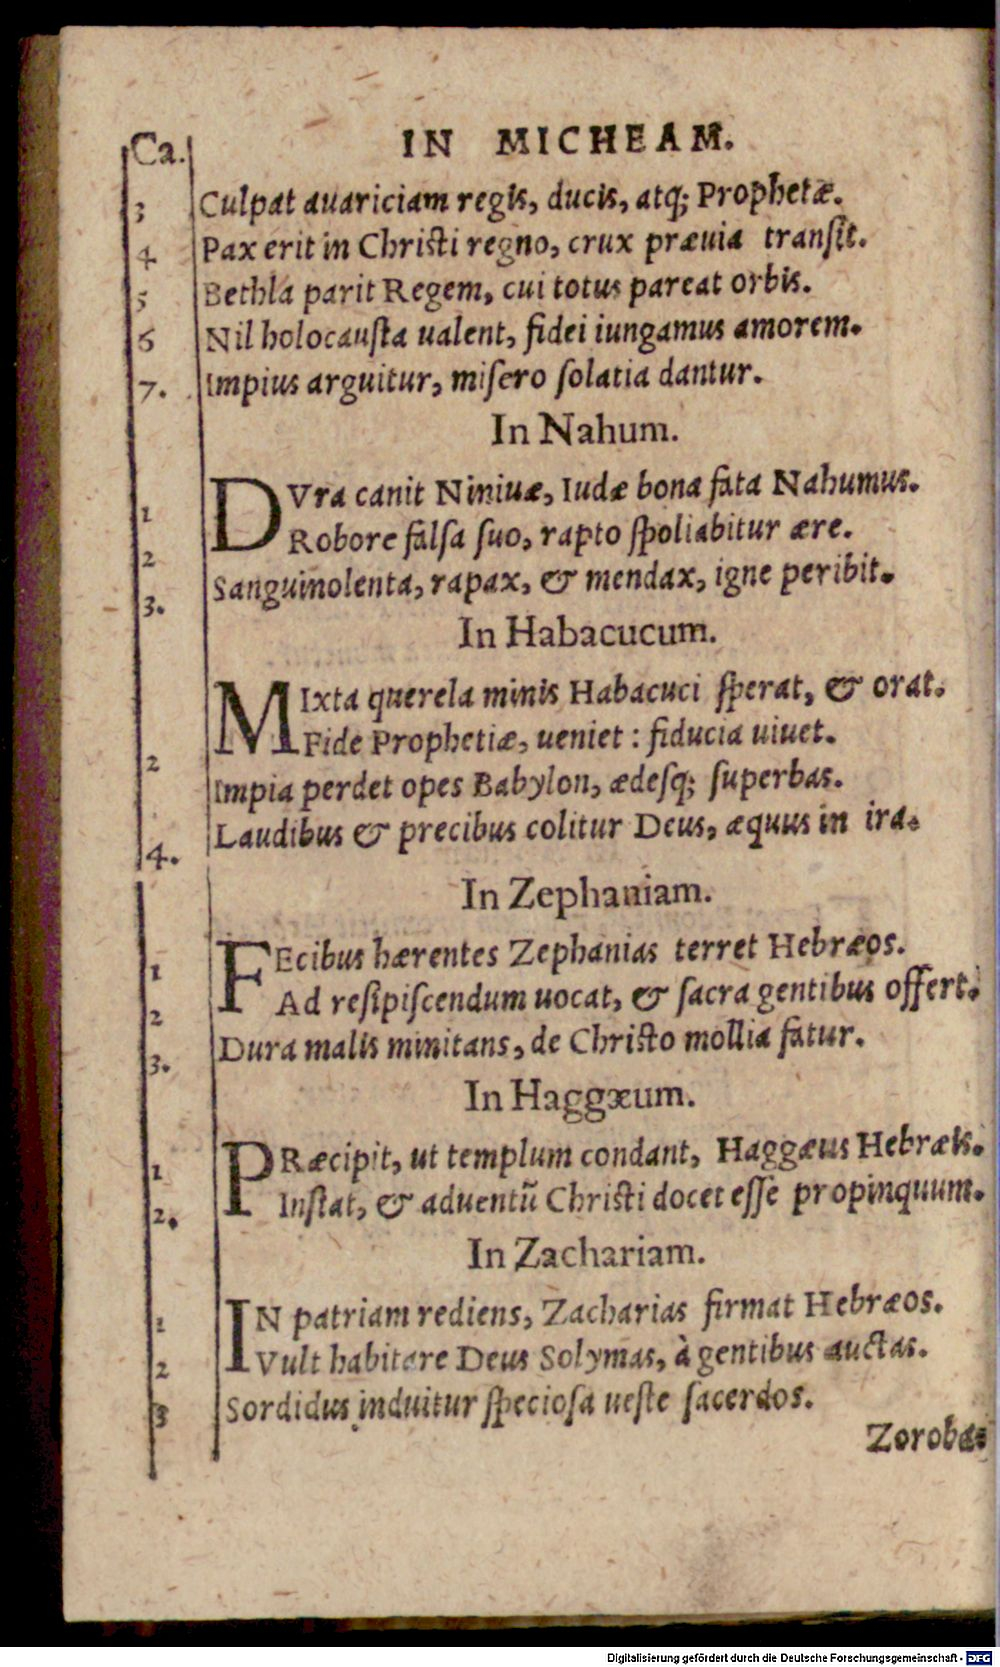 Ca. IN MICHEAM.
3 Culpat auariciam regis, ducis, atq; Prophetæ.
4 Pax erit in Christi regno, crux præuia transit.
5 Bethla parit Regem, cui totus pareat orbis.
6 Nil holocausta ualent, fidei iungamus amorem.
7. Impius arguitur, misero solatia dantur.
In Nahum.
1 DVra canit Niniuæ, Iudæ bona fata Nahumus.
2 Robore falsa suo, rapto spoliabitur ære.
3. Sanguinolenta, rapax, & mendax, igne peribit.
In Habacucum.
MIxta querela minis Habacuci sperat, & orat.
2 Fide Prophetiæ, ueniet : fiducia uiuet.
Impia perdet opes Babylon, ædesq; superbas.
4. Laudibus & precibus colitur Deus, æquus in ira.
In Zephaniam.
1 FEcibus hærentes Zephanias terret Hebræos.
2 Ad resipiscendum uocat, & sacra gentibus offert.
3. Dura malis minitans, de Christo mollia fatur.
In Haggæum.
1 PRæcipit, ut templum condant, Haggæus Hebræis.
2. Instat, & aduentũ Christi docet esse propinquum.
In Zachariam.
1 IN patriam rediens, Zacharias firmat Hebræos.
2 Vult habitare Deus Solymas, à gentibus auctas.
3 Sordidus induitur speciosa ueste sacerdos.
Zorobæ-
Digitalisierung gefördert durch die Deutsche Forschungsgemeinschaft - DFG